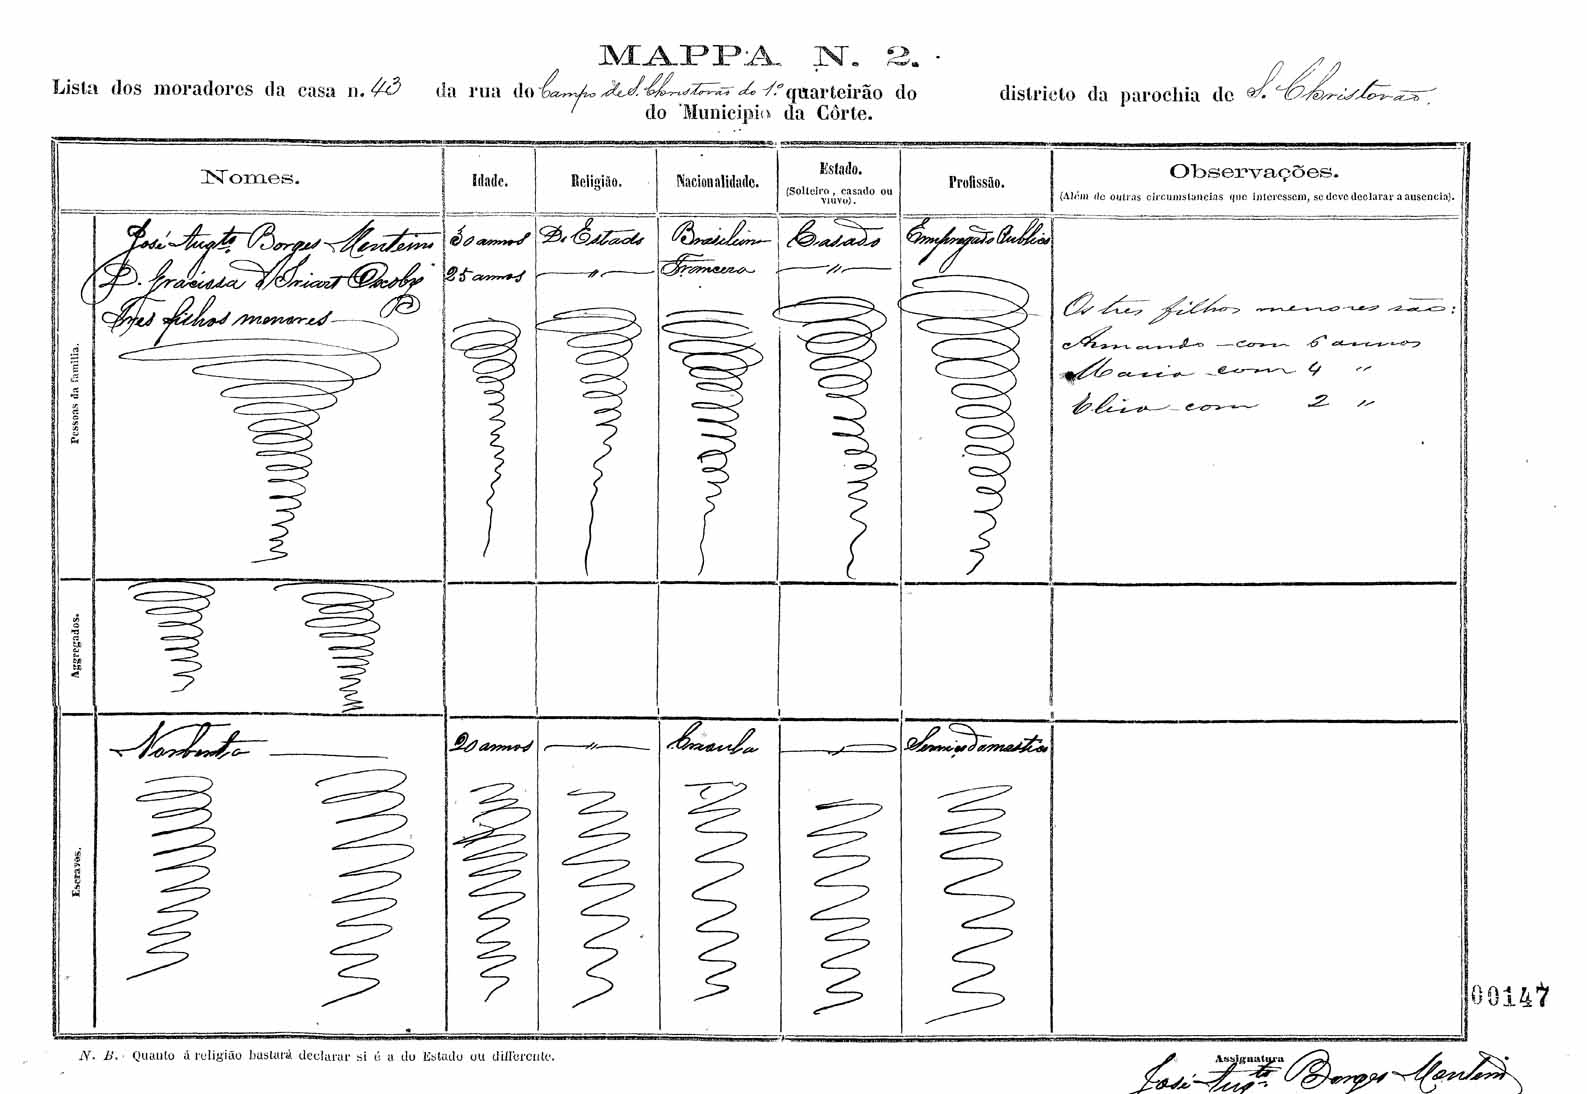 MAPPA N. 2.
Lista dos moradores da casa n. 43 da rua do Campo de S. Christovão do 1.º quarteirão do districto da parochia de S. Christovão.
do Municipio da Côrte.
Nomes. Idade. Religião. Nacionalidade. Estado. (Solteiro, casado ou viuvo). Profissão. Observações. (Além de outras circumstancias que interessem, se deve declarar a ausencia).
Pessoas da familia.
José Augto. Borges Monteiro 30 annos Do Estado Brasileiro Casado Empregado Publico
D. Graciosa d'Iriart 25 annos " Franceza "
Tres filhos menores
Os tres filhos menores são:
Armando com 6 annos
Maria com 4 "
Elisa com 2 "
Aggregados.
Escravos.
Norberta 20 annos " Creoula " Serviço domestico
00147
N. B. Quanto á religião bastará declarar si é a do Estado ou differente.
Assignatura
José Augto. Borges Monteiro